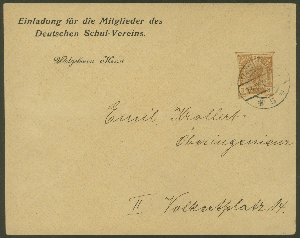 Einladung für die Mitglieder des
Deutschen Schul-Vereins.
Emil Krollert
Oberingenieur
II Volkertplatz 14.